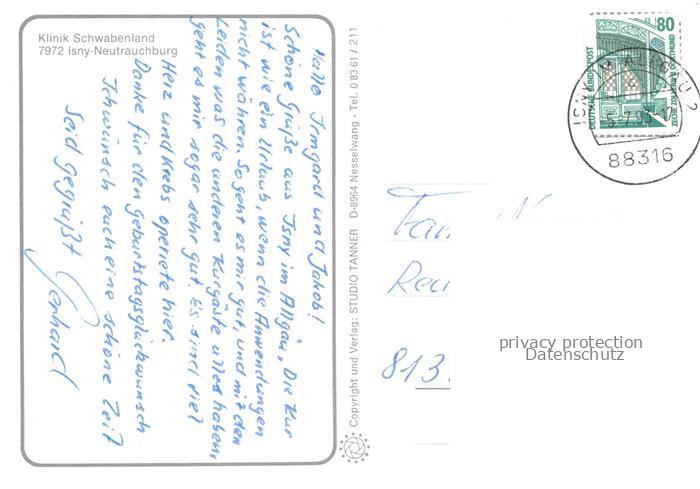 Klinik Schwabenland
7972 Isny-Neutrauchburg
Hallo Irmgard und Jakob!
Schöne Grüße aus Isny im Allgäu. Die Kur
ist wie ein Urlaub, wenn die Anwendungen
nicht währen. So geht es mir gut, und mit den
Leiden was die anderen Kurgäste alles haben,
geht es mir sogar sehr gut. Es sind viel
Herz und Krebs operiete hier.
Danke für den geburtstagsglückwunsch.
Ich wünsch euch eine schöne Zeit
Seid gegrüßt
Gerhard
Copyright und Verlag: STUDIO TANNER D-8964 Nesselwang - Tel. 0 83 61 / 211
80
DEUTSCHE BUNDESPOST
ZECHE ZOLLERN II DORTMUND
ISNY IM ALLGÄU 2
-5.-7.93-12
88316
Fam
813
privacy protection
Datenschutz